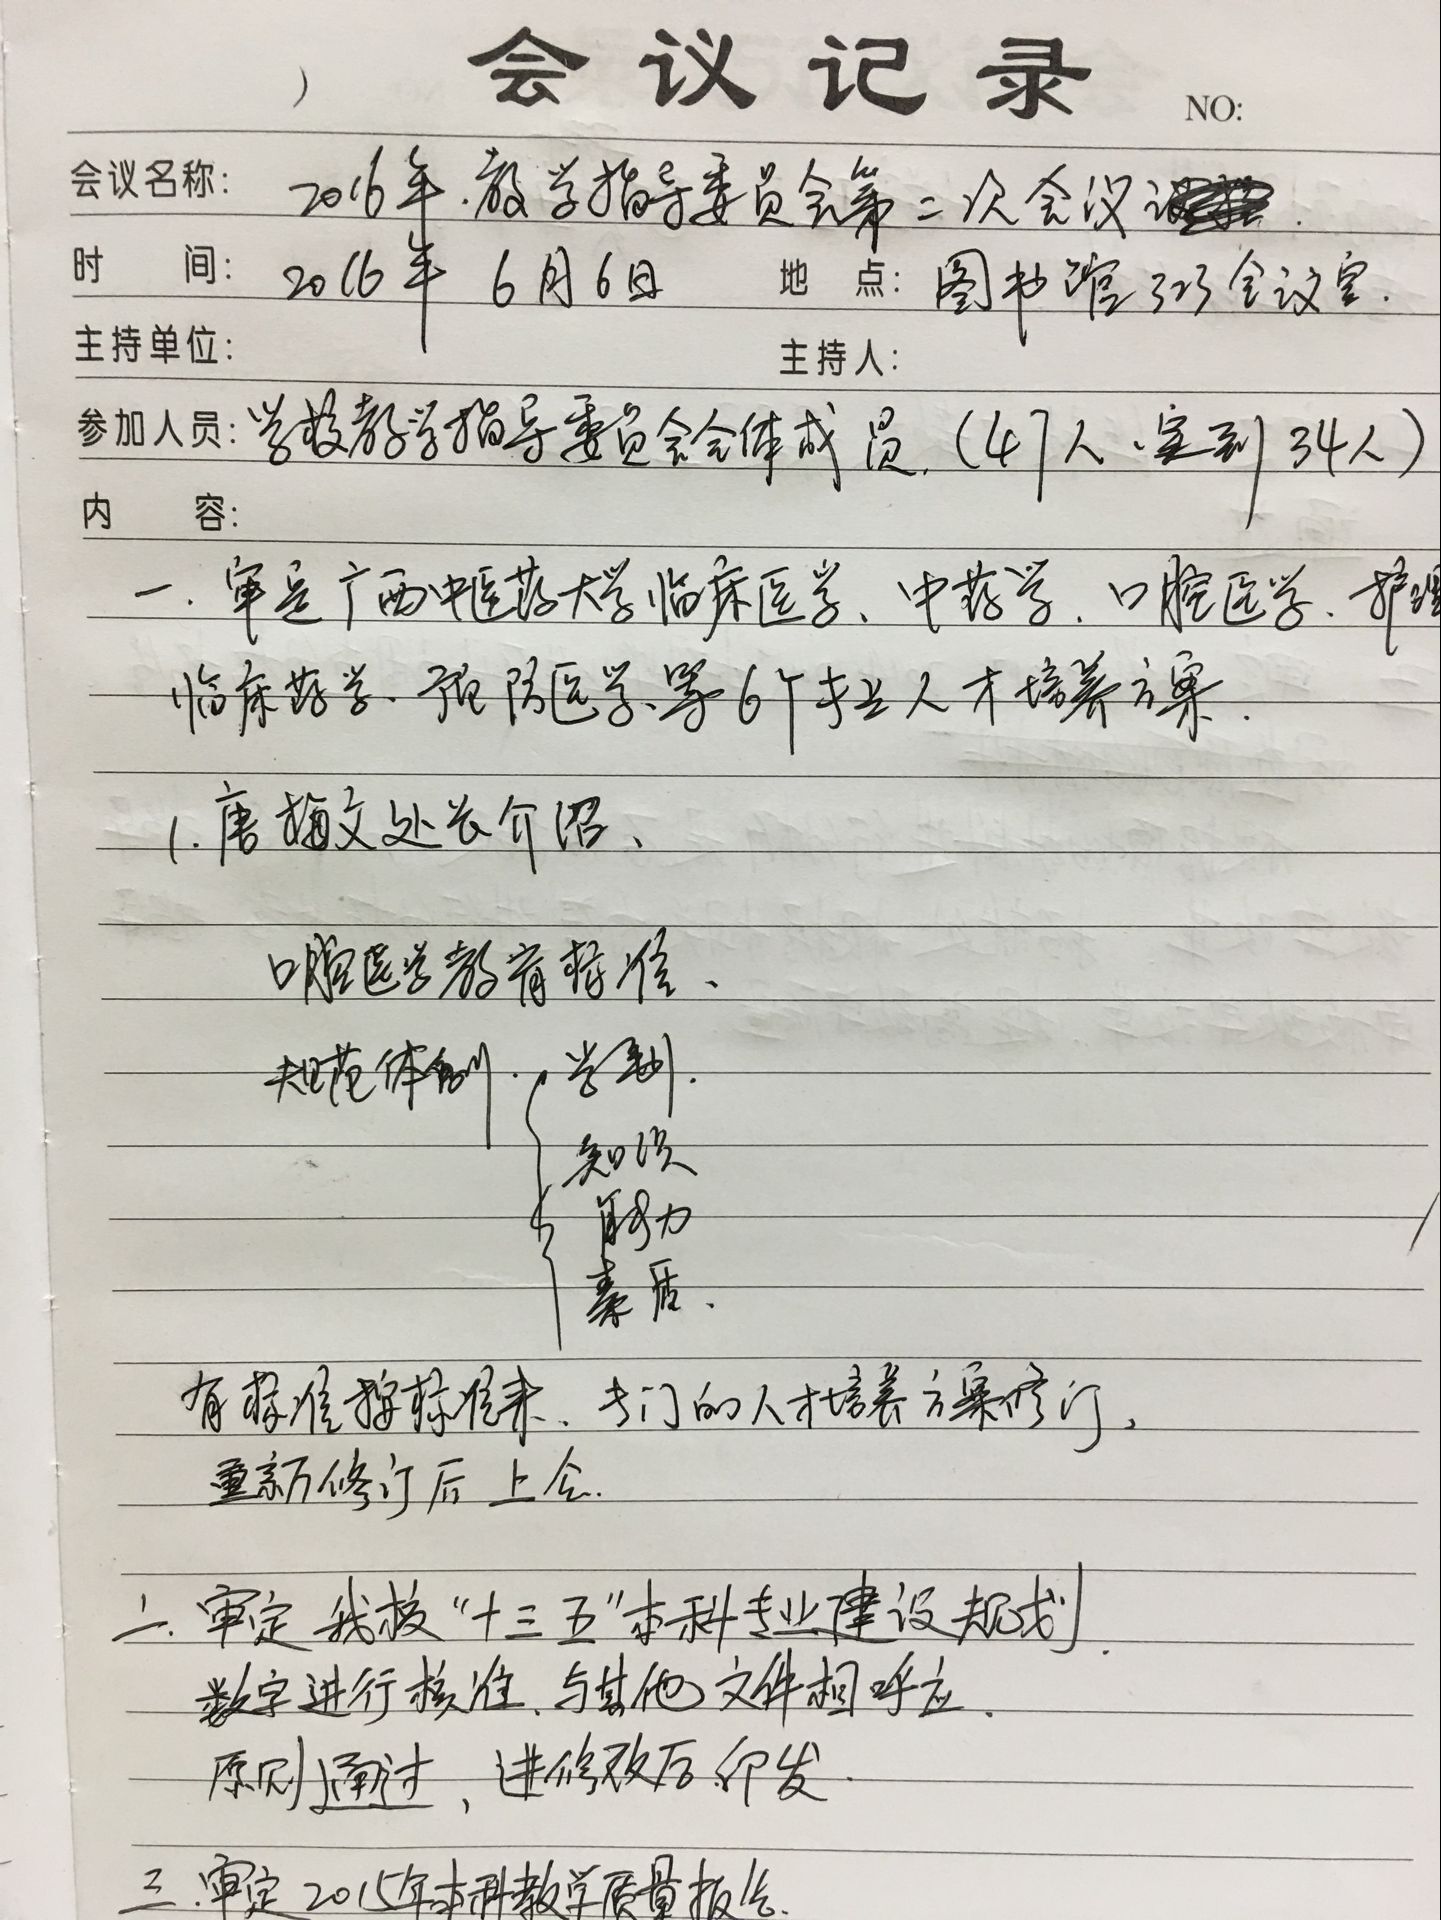 会议记录
NO:
会议名称: 2016年.教学指导委员会第二次会议
时 间: 2016年6月6日 地 点: 图书馆323会议室.
主持单位: 主持人:
参加人员: 学校教学指导委员会全体成员.(47人.实到34人)
内 容:
一.审定广西中医药大学临床医学、中药学、口腔医学、护理
临床药学、预防医学等6个专业人才培养方案.
1.唐梅文处长介绍、
口腔医学教育标准、
规范体例. 学制.
知识
能力
素质.
有标准按标准来、专门的人才培养方案修订,
重新修订后上会.
二.审定我校“十三五”本科专业建设规划.
数字进行核准、与其他文件相呼应.
原则通过,进修改后印发.
三.审定2015年本科教学质量报告.